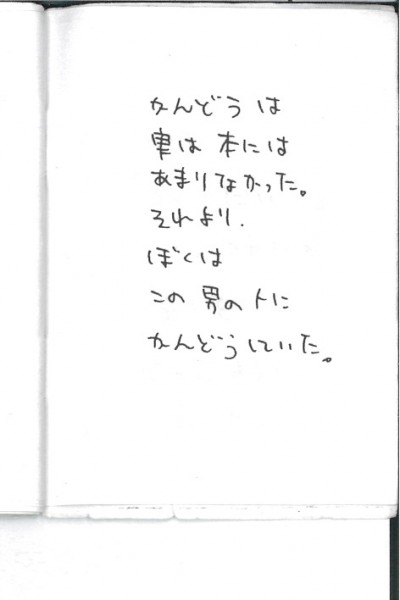 かんどうは
実は本には
あまりなかった。
それより、
ぼくは
この男の人に
かんどうしていた。